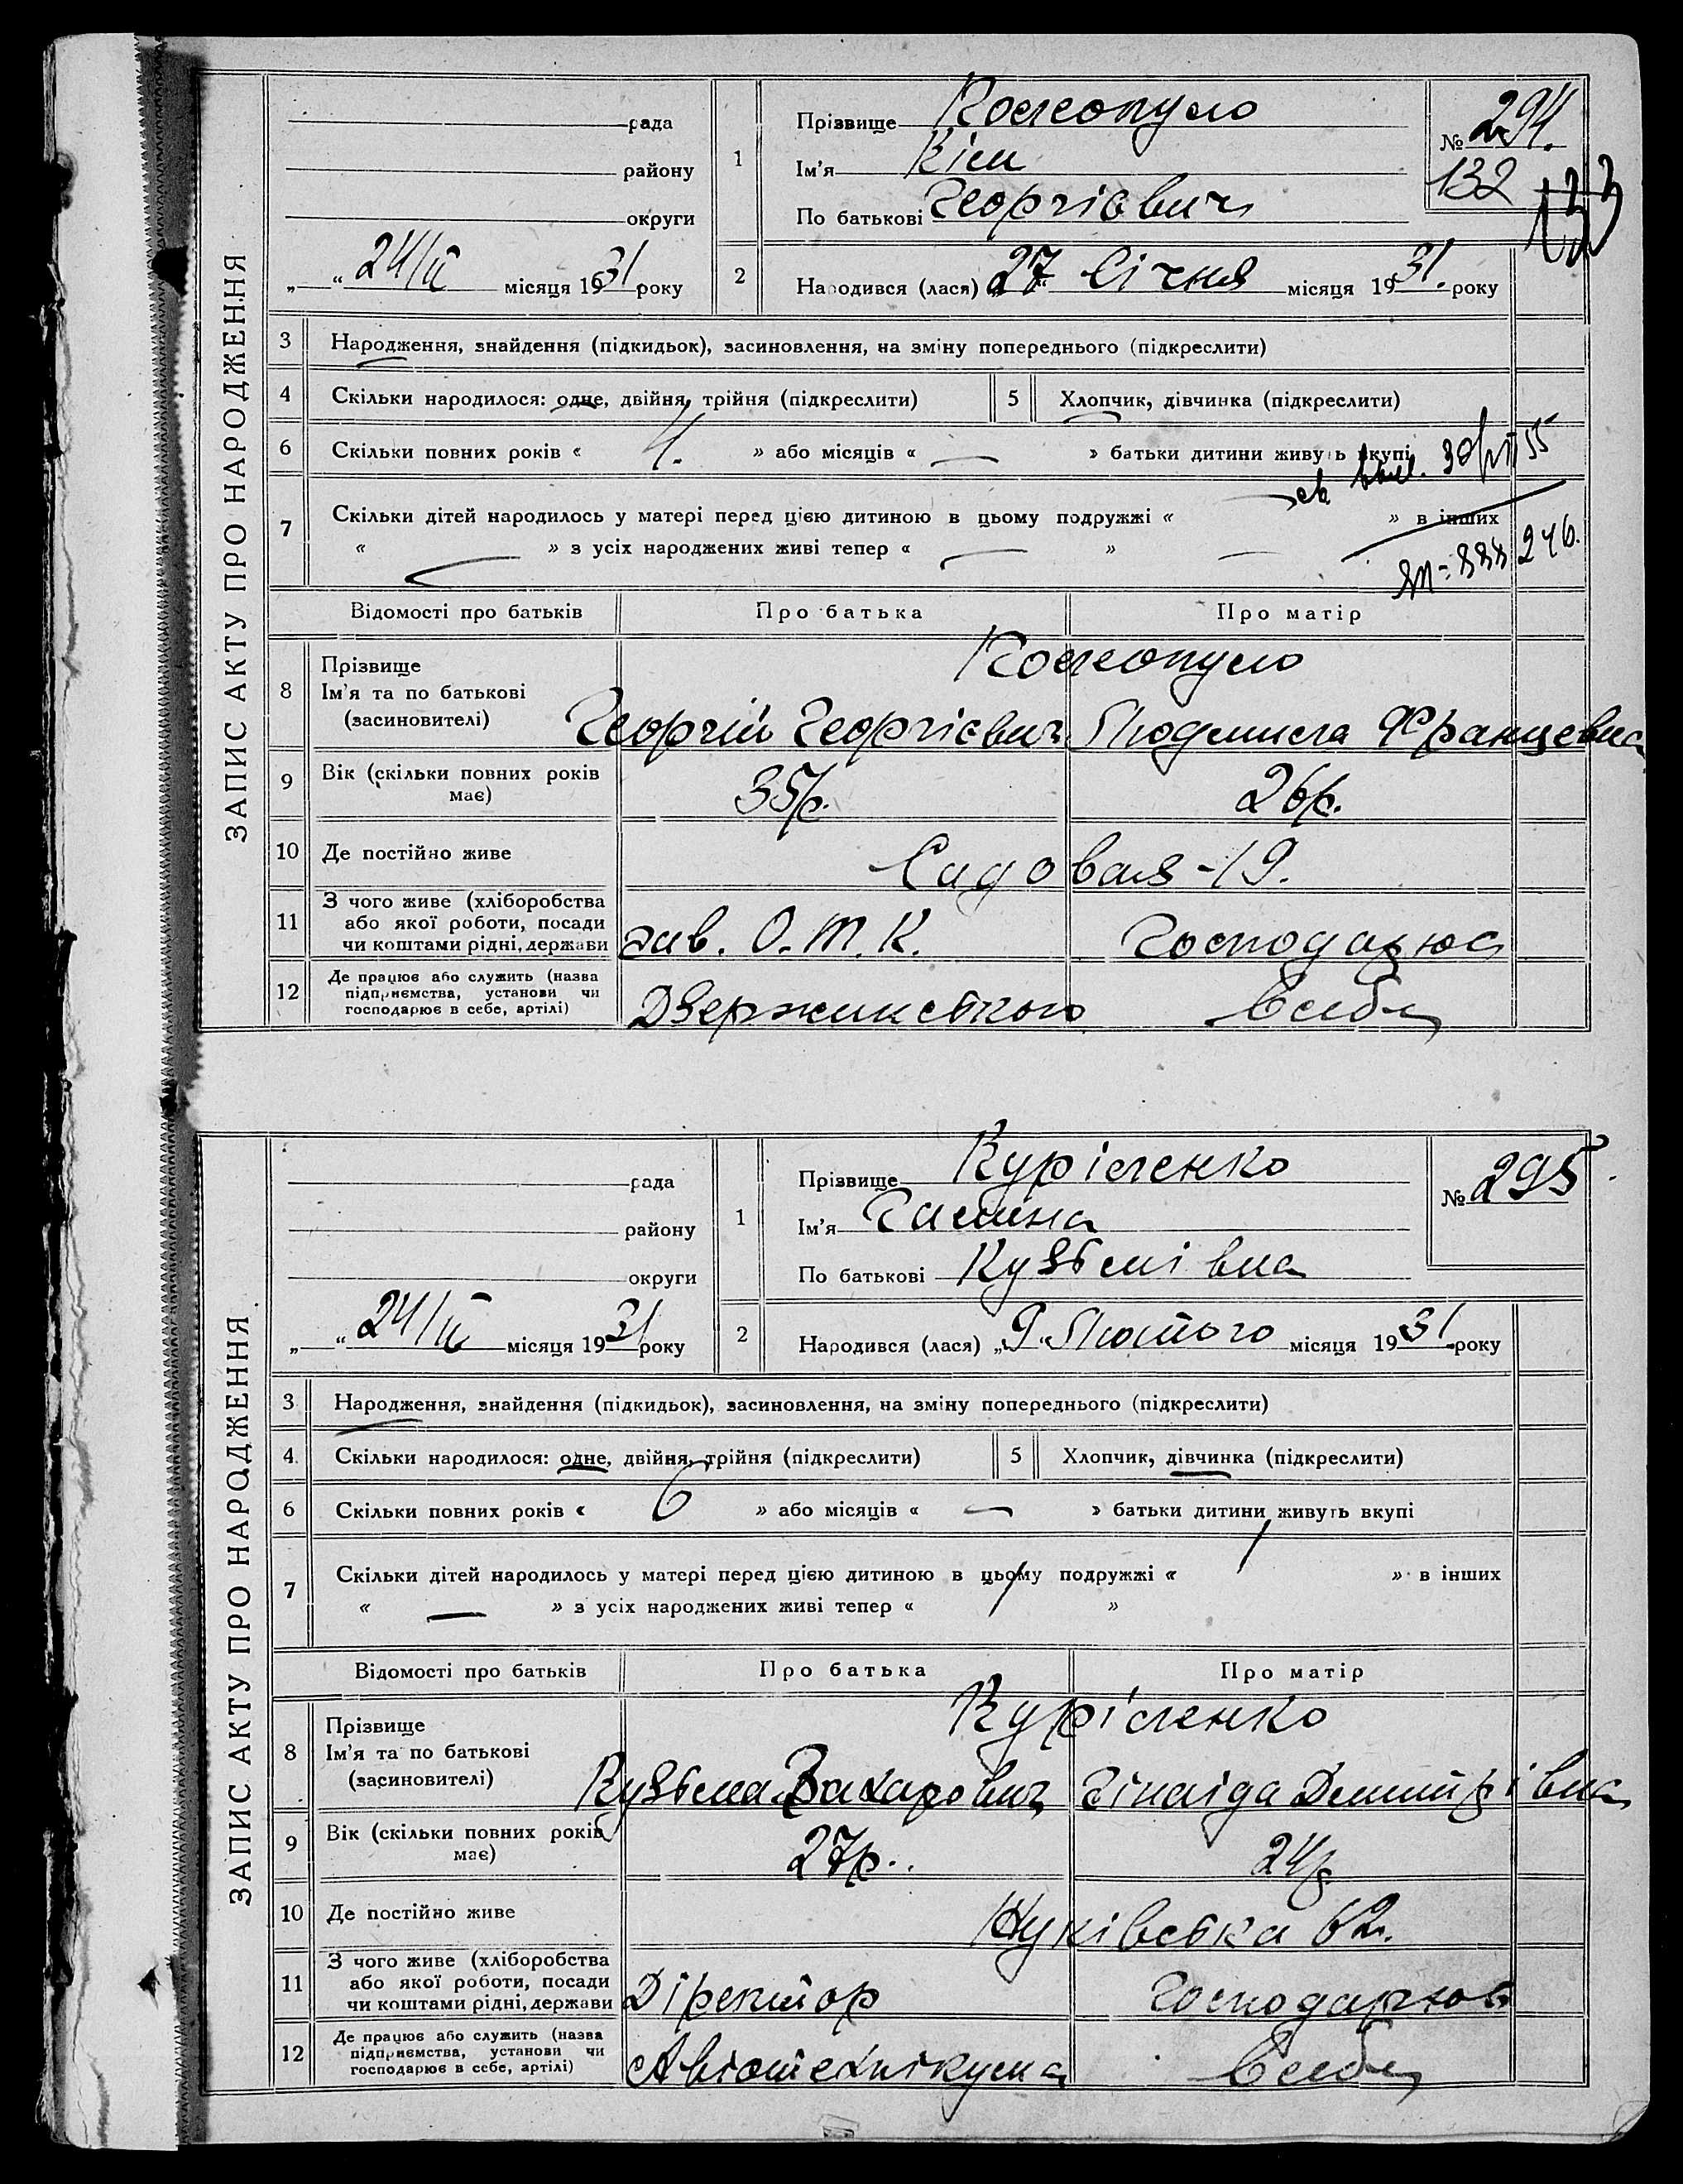 ЗАПИС АКТУ ПРО НАРОДЖЕННЯ
рада
району
округи
„ “ 24/II місяця 1931 року
1
Прізвище
Ім'я Кім
По батькові Георгієвич
№ 294.
132
133
2
Народився (лася) „27“ Січня місяця 1931. року
3 Народження, знайдення (підкидьок), засиновлення, на зміну попереднього (підкреслити)
4 Скільки народилося: одне, двійня, трійня (підкреслити) 5 Хлопчик, дівчинка (підкреслити)
6 Скільки повних років « 4. » або місяців « — » батьки дитини живуть вкупі
7 Скільки дітей народилось у матері перед цією дитиною в цьому подружжі « — » в інших
« — » з усіх народжених живі тепер « — »
Відомості про батьків Про батька Про матір
8 Прізвище
Ім'я та по батькові
(засиновителі)
Георгій Георгієвич Людмила Францевна
9 Вік (скільки повних років має) 35р. 26р.
10 Де постійно живе Садовая - 19.
11 З чого живе (хліборобства або якої роботи, посади чи коштами рідні, держави зав. О.Т.К. Господарює
12 Де працює або служить (назва підприємства, установи чи господарює в себе, артілі) Дзержинського Всебе
ЗАПИС АКТУ ПРО НАРОДЖЕННЯ
рада
району
округи
„ “ 24/II місяця 1931 року
1
Прізвище Куріленко
Ім'я Галина
По батькові Кузьмівна
№ 295
2
Народився (лася) „9“ Лютого місяця 1931 року
3 Народження, знайдення (підкидьок), засиновлення, на зміну попереднього (підкреслити)
4 Скільки народилося: одне, двійня, трійня (підкреслити) 5 Хлопчик, дівчинка (підкреслити)
6 Скільки повних років « 6 » або місяців « — » батьки дитини живуть вкупі
7 Скільки дітей народилось у матері перед цією дитиною в цьому подружжі « 1 » в інших
« — » з усіх народжених живі тепер « 1 »
Відомості про батьків Про батька Про матір
8 Прізвище
Ім'я та по батькові
(засиновителі)
Куріленко
Кузьма Захарович Зінаіда Дмитрівна
9 Вік (скільки повних років має) 27р. 24р
10 Де постійно живе 62.
11 З чого живе (хліборобства або якої роботи, посади чи коштами рідні, держави Діректор Господарює
12 Де працює або служить (назва підприємства, установи чи господарює в себе, артілі) Авіотехнікума Всебе